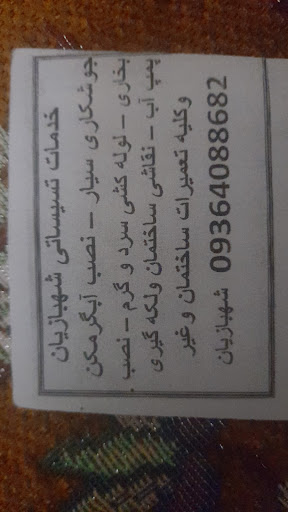 خدمات تسیساتی شهبازیان
جوشکاری سیار - نصب آبگرمکن
بخاری - لوله کشی سرد و گرم - نصب
پمپ آب - نقاشی ساختمان ولکه گیری
وکلیه تعمیرات ساختمان و غیر
09364088682 شهبازیان